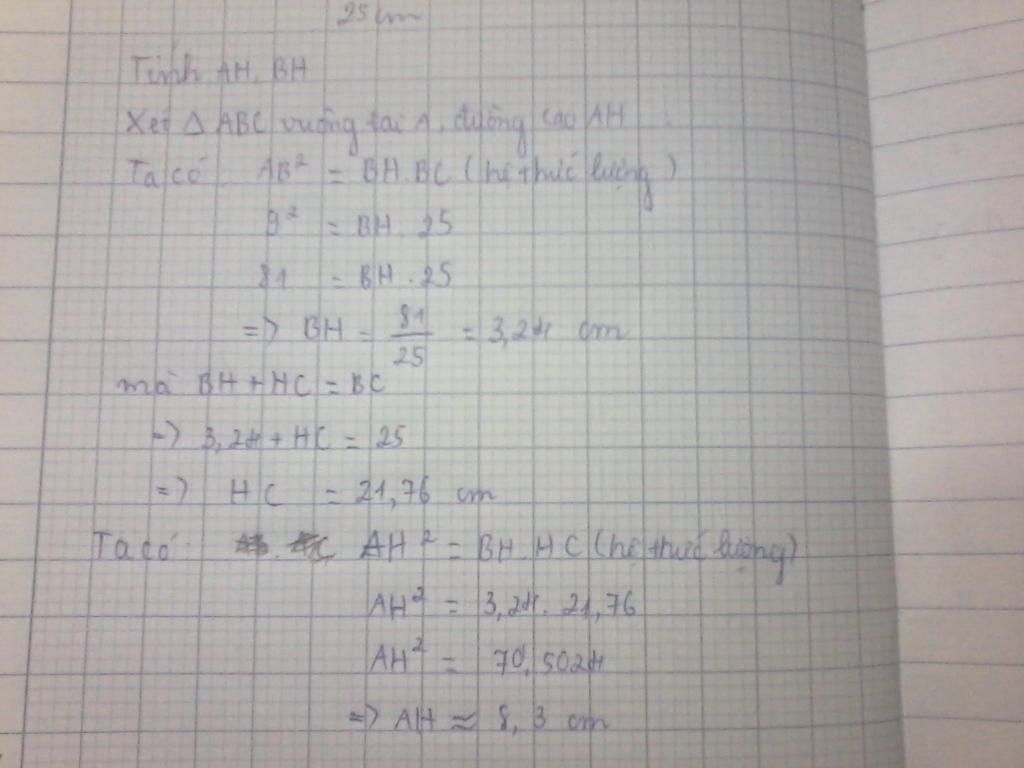 25 cm
Tính AH, BH
Xét △ ABC vuông tại A, đường cao AH :
Ta có AB² = BH.BC (hệ thức lượng)
9² = BH . 25
81 = BH . 25
=> BH = 81/25 = 3,24 cm
mà BH + HC = BC
=> 3,24 + HC = 25
=> HC = 21,76 cm
Ta có AH² = BH.HC (hệ thức lượng)
AH² = 3,24. 21,76
AH² = 70,5024
=> AH ≈ 8,3 cm